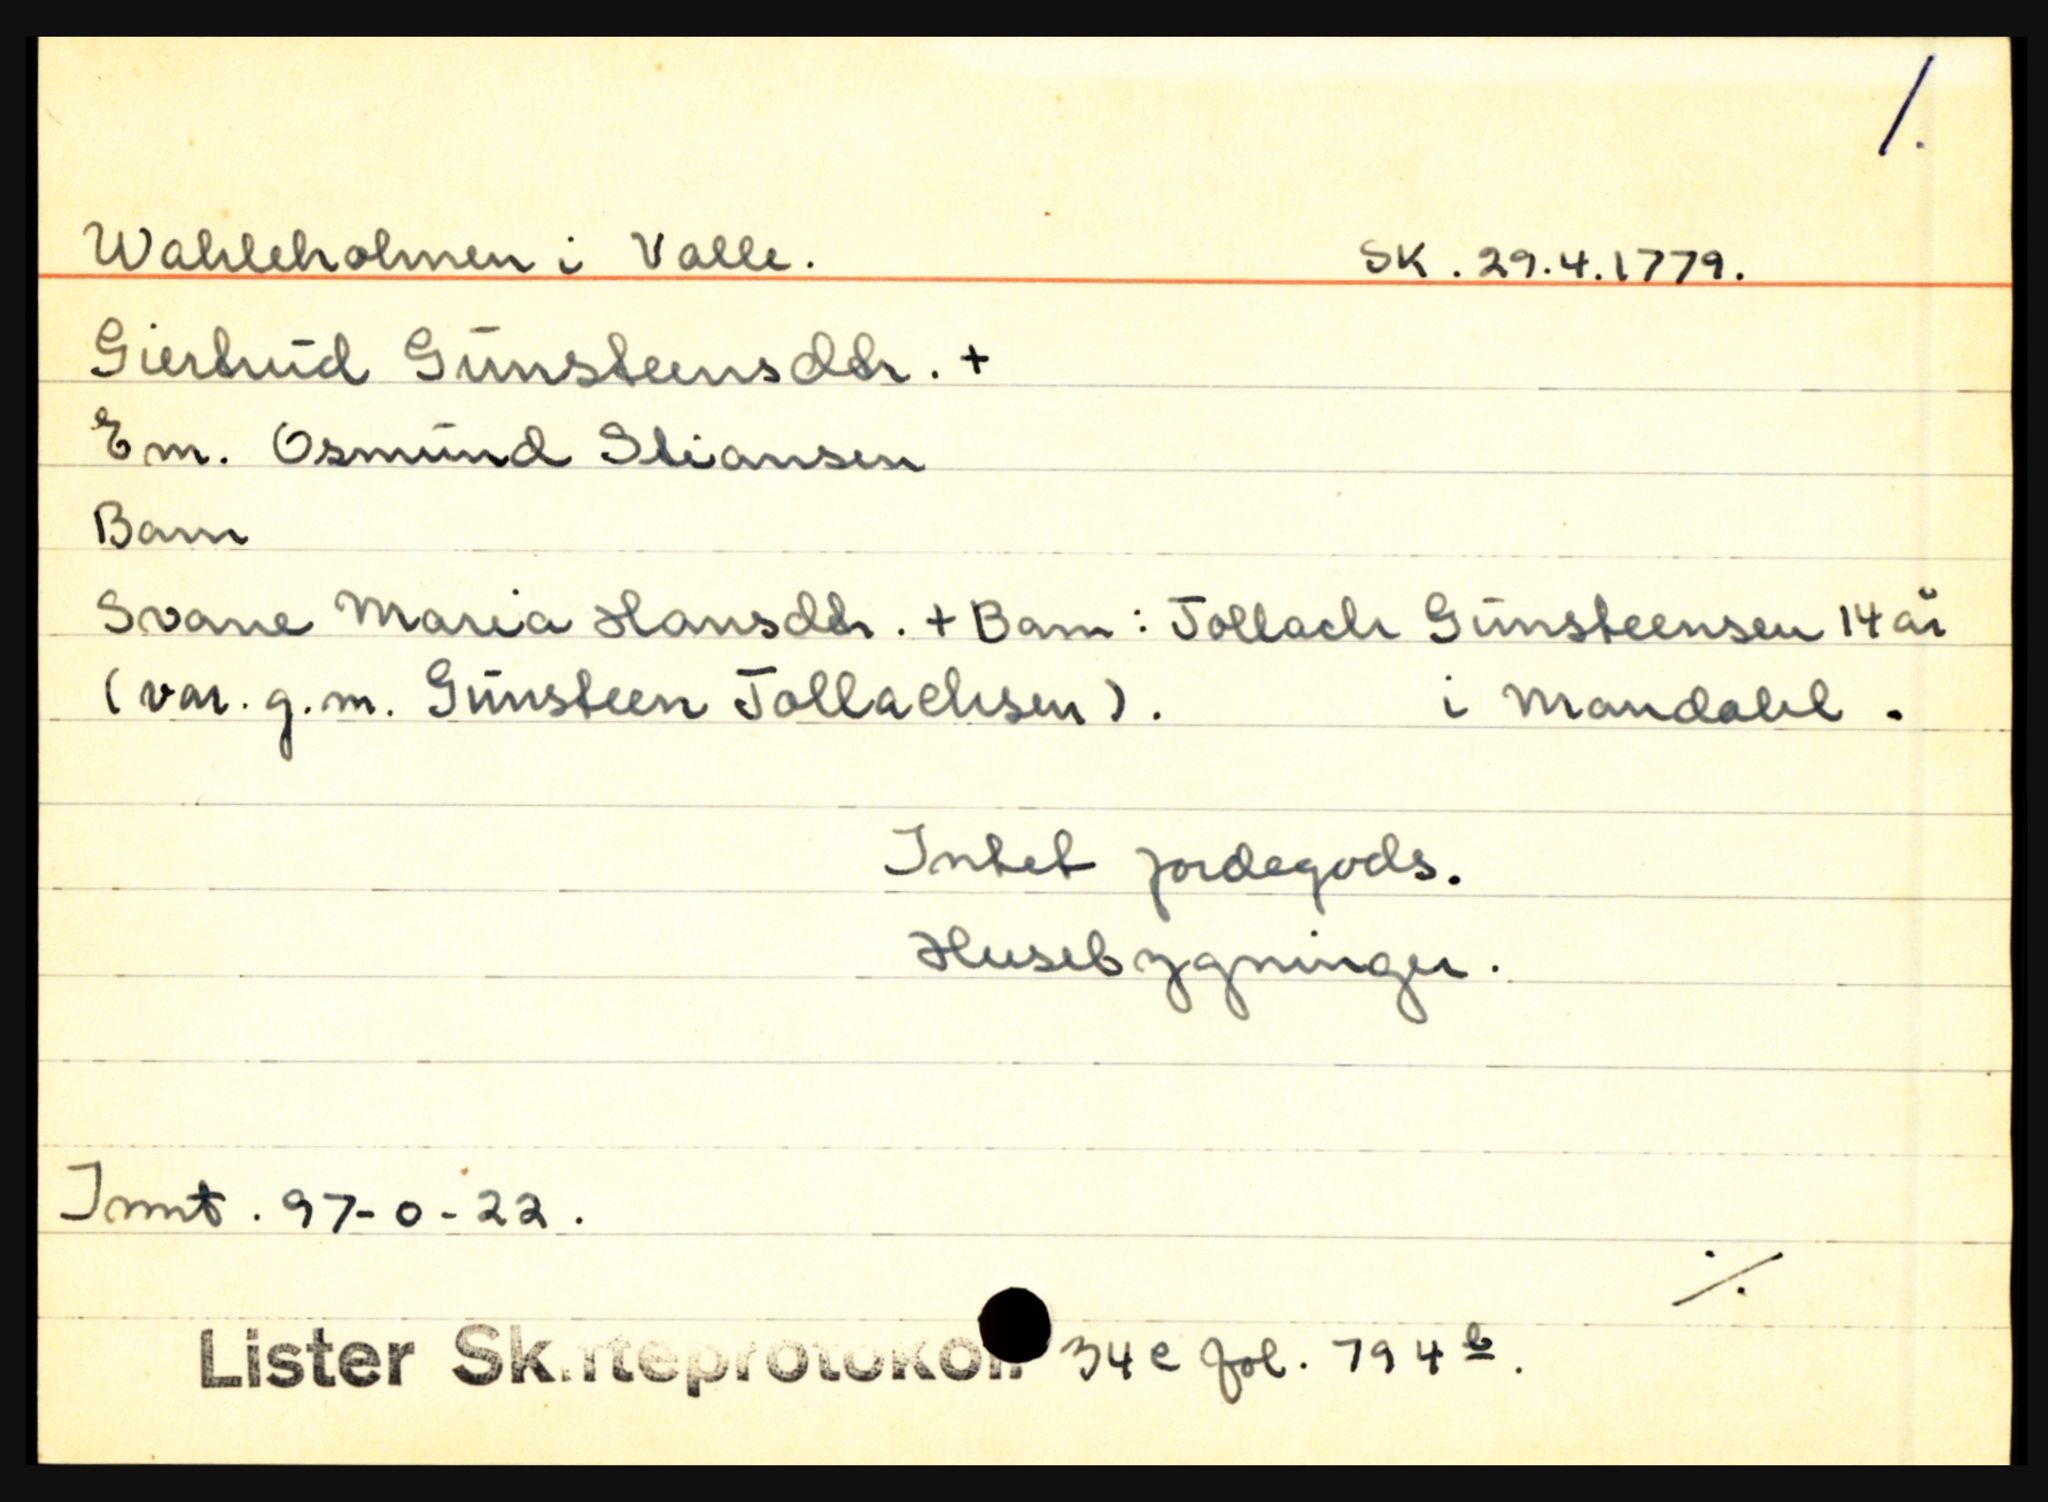 /.
Wahleholmen i Valle. SK. 29.4.1779.
Giertrūd Gūnsteensdtr. +
Em. Osmūnd Stiansen
Barn
Svane Maria Hansdtr. + Barn: Tollach Gūnsteensen 14 år
(var. g.m. Gūnsteen Tollachsen). i Mandahl.
Intet jordegods.
Husebygninger.
Innt. 97-0-22.
./.
Lister Skifteprotokoll 34 c fol. 794 b.